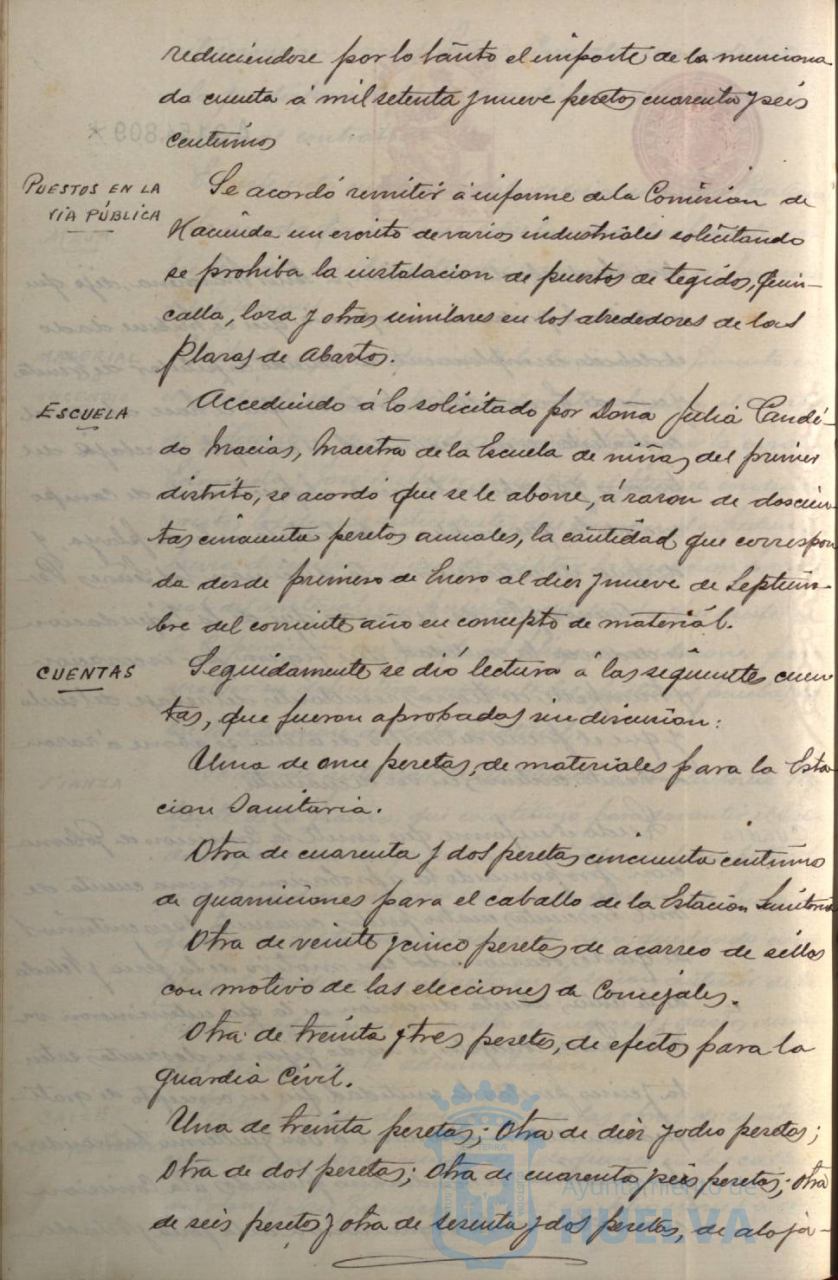 reduciéndose por lo tánto el importe de la menciona
da cuenta á mil setenta y nueve pesetas cuarenta y seis
centimos
PUESTOS EN LA
VIA PÚBLICA
Se acordó remitir á informe de la Comision de
Hacienda un escrito de varios industriales solicitando
se prohiba la instalacion de puestos de tegidos, quin-
calla, loza y otras similares en los alrededores de las
Plazas de Abastos.
ESCUELA
Accediendo á lo solicitado por Doña Julia Candi-
do Macias, Maestra de la Escuela de niñas del primer
distrito, se acordó que se le abone, á razon de doscien-
tas cincuenta pesetas anuales, la cantidad que correspon
da desde primero de Enero al diez y nueve de Septiem-
bre del corriente año en concepto de materiál.
CUENTAS
Seguidamente se dió lectura á las siguientes cuen
tas, que fueron aprobadas sin discusion:
Una de once pesetas, de materiales para la Esta-
cion Sanitaria.
Otra de cuarenta y dos pesetas cincuenta centimos
de guarniciones para el caballo de la Estacion Sanitaria
Otra de veinte y cinco pesetas de acarreo de sillas
con motivo de las elecciones de Concejales.
Otra de treinta y tres pesetas, de efectos para la
guardia Civil.
Una de treinta pesetas; Otra de diez y ocho pesetas;
Otra de dos pesetas; Otra de cuarenta y seis pesetas; otra
de seis pesetas y otra de sesenta y dos pesetas, de aloja-
Ayuntamiento de
HUELVA